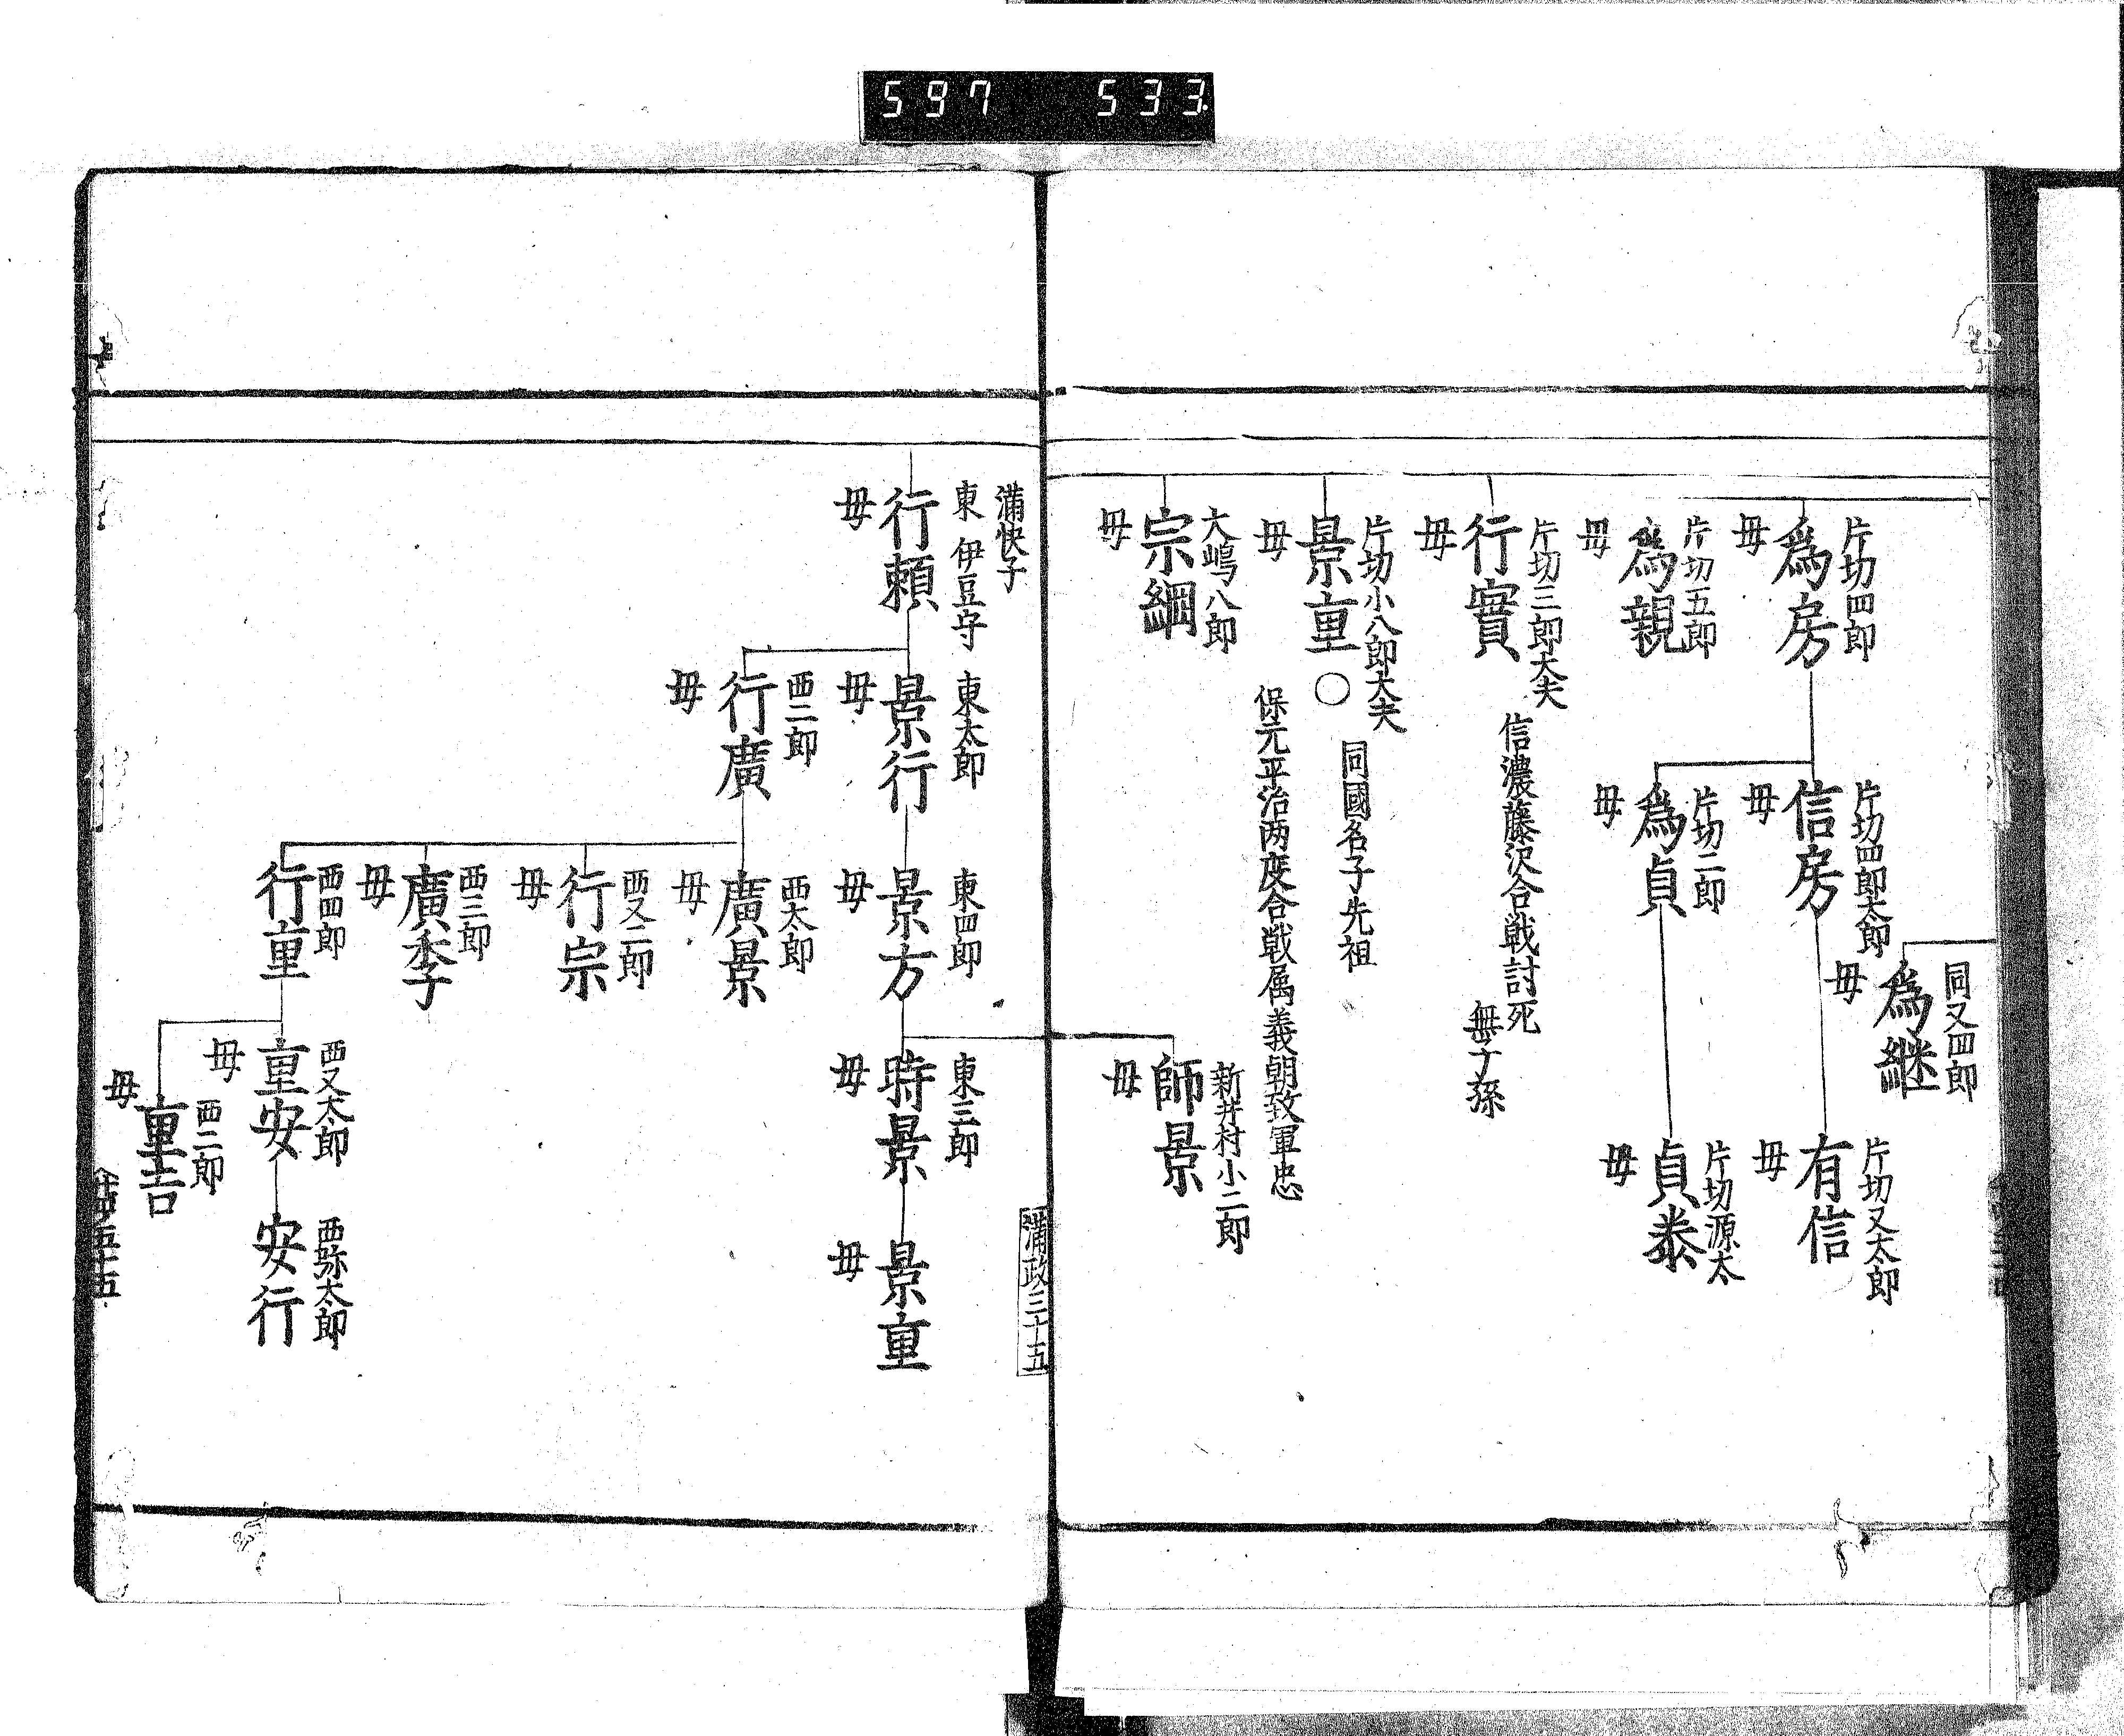 597 533
片切四郎
為房
毋
片切五郎
為親
毋
片切三郎大夫
行實
毋
信濃藤沢合戦討死
無子孫
片切小八郎大夫
景重○
毋
同國名子先祖
保元平治两度合戦属義朝致軍忠
大嶋八郎
宗綱
毋
片切四郎太郎
信房
毋
片切二郎
為貞
毋
同又四郎
為継
毋
片切又太郎
有信
毋
片切源太
貞泰
毋
新井村小二郎
師景
毋
満政三十五
満快子
東 伊豆守
行頼
毋
東太郎
景行
毋
西二郎
行廣
毋
東四郎
景方
毋
西太郎
廣景
毋
西又二郎
行宗
毋
西三郎
廣季
毋
西四郎
行重
東三郎
時景
毋
西又太郎
重安
毋
西二郎
重吉
毋
景重
毋
西弥太郎
安行